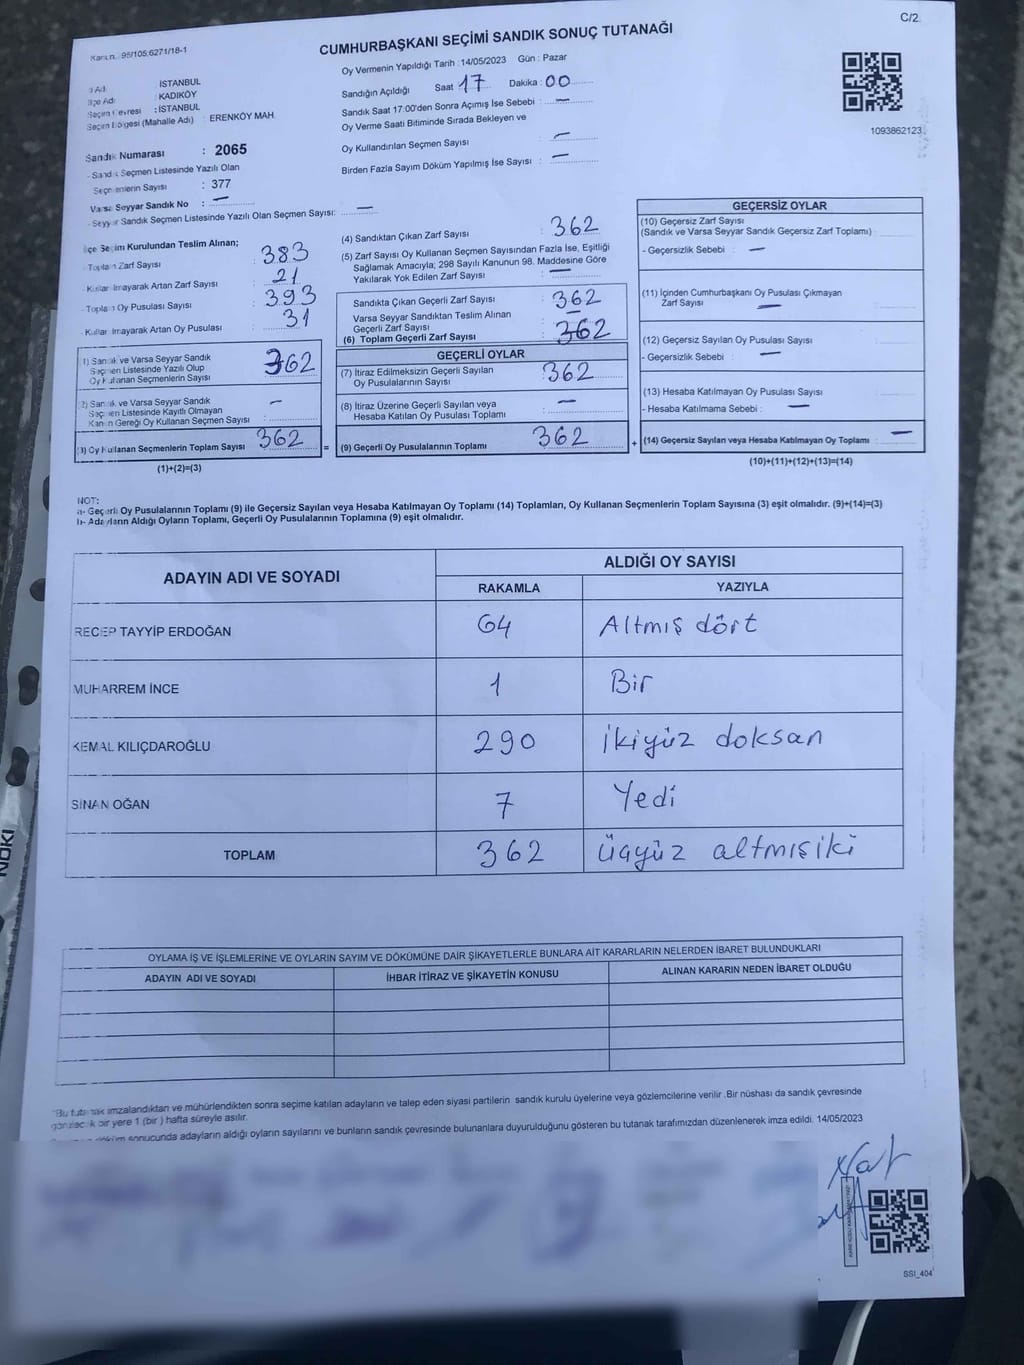 C/2
Kanun: 95/105;6271/18-1
CUMHURBAŞKANI SEÇİMİ SANDIK SONUÇ TUTANAĞI
Oy Vermenin Yapıldığı Tarih : 14/05/2023 Gün : Pazar
Sandığın Açıldığı Saat 17 Dakika : 00
Sandık Saat 17:00'den Sonra Açımış İse Sebebi : —
Oy Verme Saati Bitiminde Sırada Bekleyen ve
Oy Kullandırılan Seçmen Sayısı : —
Birden Fazla Sayım Döküm Yapılmış İse Sayısı : —
1093862123
İl Adı : İSTANBUL
İlçe Adı : KADIKÖY
Seçim Çevresi : İSTANBUL
Seçim Bölgesi (Mahalle Adı) : ERENKÖY MAH.
Sandık Numarası : 2065
- Sandık Seçmen Listesinde Yazılı Olan
Seçmenlerin Sayısı : 377
Varsa Seyyar Sandık No : —
- Seyyar Sandık Seçmen Listesinde Yazılı Olan Seçmen Sayısı: —
İlçe Seçim Kurulundan Teslim Alınan;
- Toplam Zarf Sayısı : 383
- Kullanılmayarak Artan Zarf Sayısı : 21
- Toplam Oy Pusulası Sayısı : 393
- Kullanılmayarak Artan Oy Pusulası : 31
(1) Sandık ve Varsa Seyyar Sandık
Seçmen Listesinde Yazılı Olup
Oy Kullanan Seçmenlerin Sayısı 362
(2) Sandık ve Varsa Seyyar Sandık
Seçmen Listesinde Kayıtlı Olmayan
Kanun Gereği Oy Kullanan Seçmen Sayısı —
(3) Oy Kullanan Seçmenlerin Toplam Sayısı 362 =
(1)+(2)=(3)
(4) Sandıktan Çıkan Zarf Sayısı : 362
(5) Zarf Sayısı Oy Kullanan Seçmen Sayısından Fazla İse, Eşitliği
Sağlamak Amacıyla; 298 Sayılı Kanunun 98. Maddesine Göre
Yakılarak Yok Edilen Zarf Sayısı : —
Sandıkta Çıkan Geçerli Zarf Sayısı : 362
Varsa Seyyar Sandıktan Teslim Alınan
Geçerli Zarf Sayısı : —
(6) Toplam Geçerli Zarf Sayısı : 362
GEÇERLİ OYLAR
(7) İtiraz Edilmeksizin Geçerli Sayılan
Oy Pusulalarının Sayısı : 362
(8) İtiraz Üzerine Geçerli Sayılan veya
Hesaba Katılan Oy Pusulası Toplamı : —
(9) Geçerli Oy Pusulalarının Toplamı : 362 +
GEÇERSİZ OYLAR
(10) Geçersiz Zarf Sayısı
(Sandık ve Varsa Seyyar Sandık Geçersiz Zarf Toplamı) :
- Geçersizlik Sebebi : —
(11) İçinden Cumhurbaşkanı Oy Pusulası Çıkmayan
Zarf Sayısı : —
(12) Geçersiz Sayılan Oy Pusulası Sayısı :
- Geçersizlik Sebebi : —
(13) Hesaba Katılmayan Oy Pusulası Sayısı :
- Hesaba Katılmama Sebebi : —
(14) Geçersiz Sayılan veya Hesaba Katılmayan Oy Toplamı : —
(10)+(11)+(12)+(13)=(14)
NOT:
a- Geçerli Oy Pusulalarının Toplamı (9) ile Geçersiz Sayılan veya Hesaba Katılmayan Oy Toplamı (14) Toplamları, Oy Kullanan Seçmenlerin Toplam Sayısına (3) eşit olmalıdır. (9)+(14)=(3)
b- Adayların Aldığı Oyların Toplamı, Geçerli Oy Pusulalarının Toplamına (9) eşit olmalıdır.
ADAYIN ADI VE SOYADI ALDIĞI OY SAYISI
RAKAMLA YAZIYLA
RECEP TAYYİP ERDOĞAN 64 Altmış dört
MUHARREM İNCE 1 Bir
KEMAL KILIÇDAROĞLU 290 ikiyüz doksan
SİNAN OĞAN 7 Yedi
TOPLAM 362 üçyüz altmışiki
OYLAMA İŞ VE İŞLEMLERİNE VE OYLARIN SAYIM VE DÖKÜMÜNE DAİR ŞİKAYETLERLE BUNLARA AİT KARARLARIN NELERDEN İBARET BULUNDUKLARI
ADAYIN ADI VE SOYADI İHBAR İTİRAZ VE ŞİKAYETİN KONUSU ALINAN KARARIN NEDEN İBARET OLDUĞU
"Bu tutanak imzalandıktan ve mühürlendikten sonra seçime katılan adayların ve talep eden siyasi partilerin sandık kurulu üyelerine veya gözlemcilerine verilir .Bir nüshası da sandık çevresinde
görülecek bir yere 1 (bir ) hafta süreyle asılır.
döküm sonucunda adayların aldığı oyların sayılarını ve bunların sandık çevresinde bulunanlara duyurulduğunu gösteren bu tutanak tarafımızdan düzenlenerek imza edildi. 14/05/2023
SSI_404